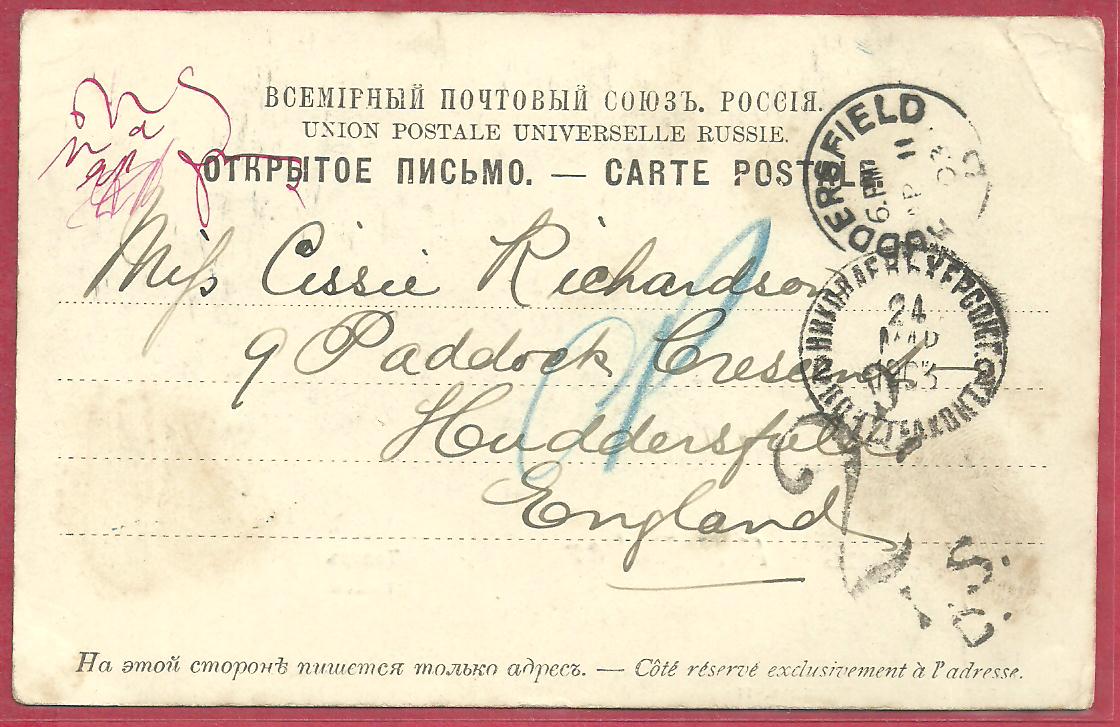 ВСЕМІРНЫЙ ПОЧТОВЫЙ СОЮЗЪ. РОССІЯ.
UNION POSTALE UNIVERSELLE RUSSIE.
ОТКРЫТОЕ ПИСЬМО. — CARTE POSTALE
HUDDERSFIELD
6. PM
AP 11
03
Miss Cissie Richardson
9 Paddock Crescent
Huddersfield
England
24
МАР
1903
На этой сторонѣ пишется только адресъ. — Côté réservé exclusivement à l'adresse.